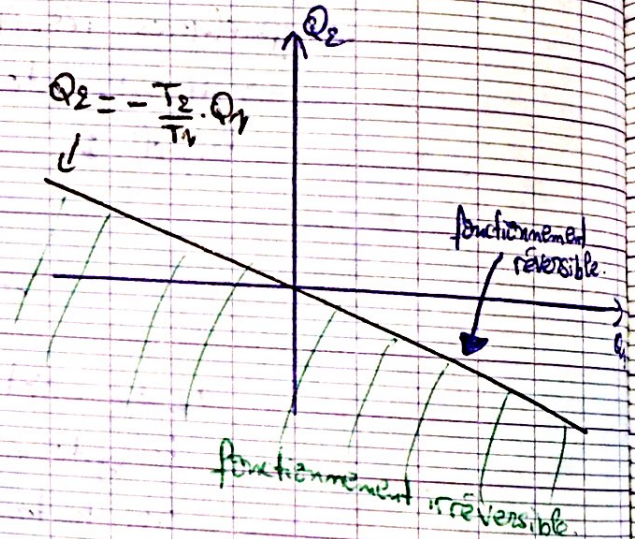 Q₂
Q₂ = - T₂/T₁ . Q₁
fonctionnement
réversible.
Q₁
fonctionnement irréversible.